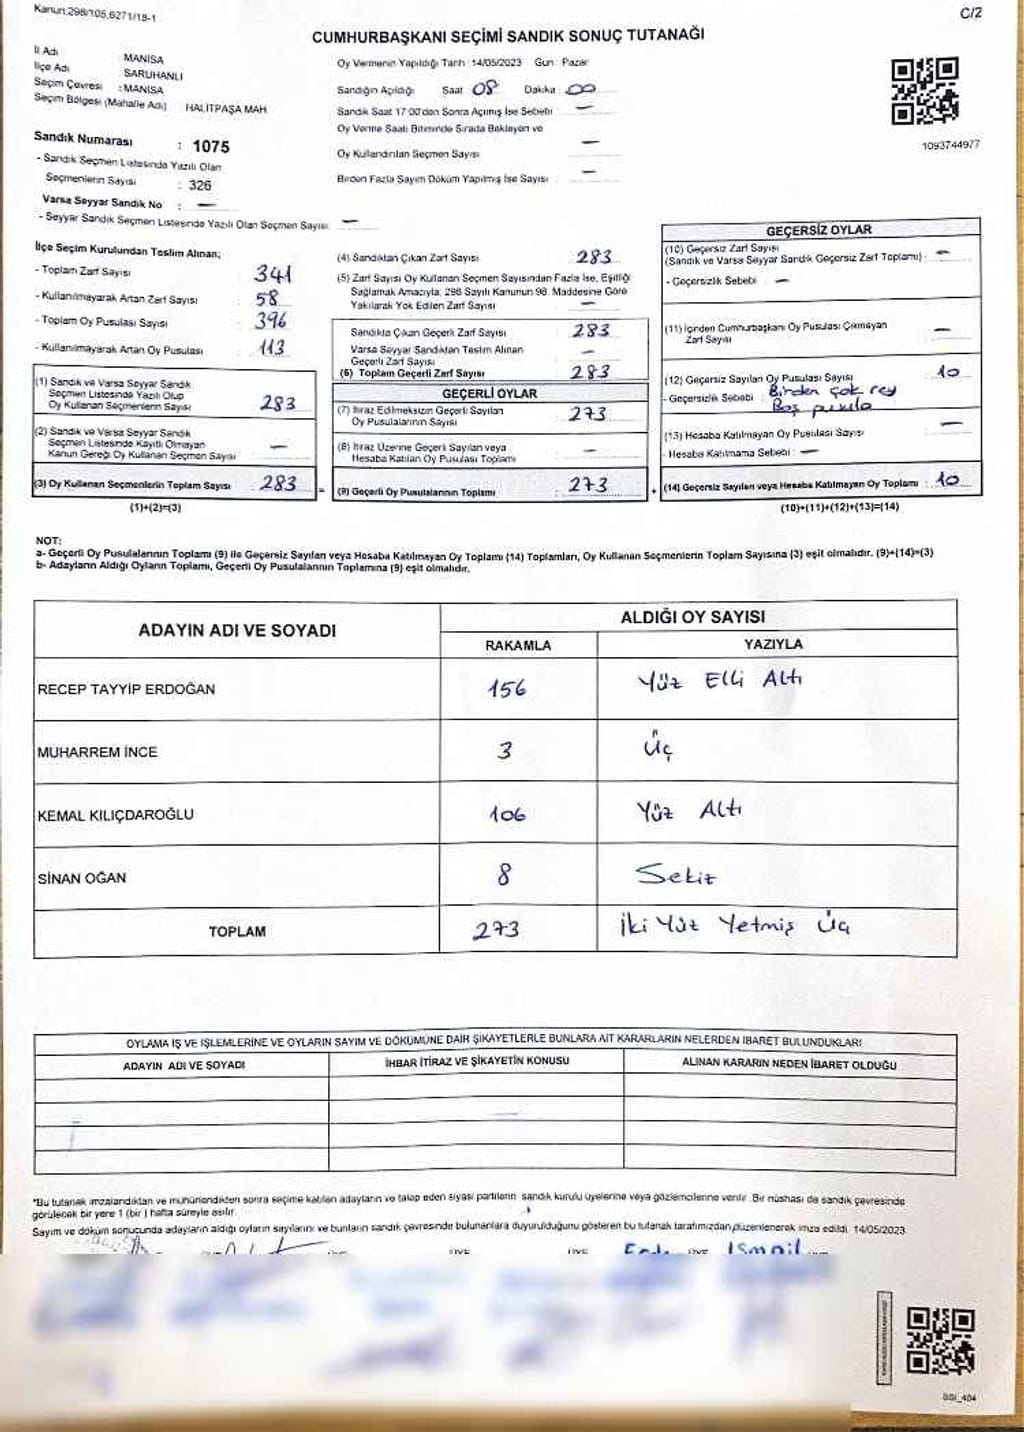 Kanun:298/105,6271/18-1
C/2
CUMHURBAŞKANI SEÇİMİ SANDIK SONUÇ TUTANAĞI
İl Adı : MANİSA
İlçe Adı : SARUHANLI
Seçim Çevresi : MANİSA
Seçim Bölgesi (Mahalle Adı) HALİTPAŞA MAH
Oy Vermenin Yapıldığı Tarih :14/05/2023 Gün : Pazar
Sandığın Açıldığı Saat 08 Dakika 00
Sandık Saat 17:00'den Sonra Açılmış İse Sebebi : —
Oy Verme Saati Bitiminde Sırada Bekleyen ve
Oy Kullandırılan Seçmen Sayısı : —
Birden Fazla Sayım Döküm Yapılmış İse Sayısı : —
1093744977
Sandık Numarası : 1075
- Sandık Seçmen Listesinde Yazılı Olan
Seçmenlerin Sayısı : 326
Varsa Seyyar Sandık No : —
- Seyyar Sandık Seçmen Listesinde Yazılı Olan Seçmen Sayısı: —
İlçe Seçim Kurulundan Teslim Alınan;
- Toplam Zarf Sayısı : 341
- Kullanılmayarak Artan Zarf Sayısı : 58
- Toplam Oy Pusulası Sayısı : 396
- Kullanılmayarak Artan Oy Pusulası : 113
(1) Sandık ve Varsa Seyyar Sandık
Seçmen Listesinde Yazılı Olup
Oy Kullanan Seçmenlerin Sayısı : 283
(2) Sandık ve Varsa Seyyar Sandık
Seçmen Listesinde Kayıtlı Olmayan
Kanun Gereği Oy Kullanan Seçmen Sayısı : —
(3) Oy Kullanan Seçmenlerin Toplam Sayısı : 283
(1)+(2)=(3)
(4) Sandıktan Çıkan Zarf Sayısı : 283
(5) Zarf Sayısı Oy Kullanan Seçmen Sayısından Fazla İse, Eşitliği
Sağlamak Amacıyla; 298 Sayılı Kanunun 98. Maddesine Göre
Yakılarak Yok Edilen Zarf Sayısı : —
Sandıkta Çıkan Geçerli Zarf Sayısı : 283
Varsa Seyyar Sandıktan Teslim Alınan
Geçerli Zarf Sayısı : —
(6) Toplam Geçerli Zarf Sayısı : 283
GEÇERLİ OYLAR
(7) İtiraz Edilmeksizin Geçerli Sayılan
Oy Pusulalarının Sayısı : 273
(8) İtiraz Üzerine Geçerli Sayılan veya
Hesaba Katılan Oy Pusulası Toplamı : —
= (9) Geçerli Oy Pusulalarının Toplamı : 273 +
GEÇERSİZ OYLAR
(10) Geçersiz Zarf Sayısı
(Sandık ve Varsa Seyyar Sandık Geçersiz Zarf Toplamı) : —
- Geçersizlik Sebebi : —
(11) İçinden Cumhurbaşkanı Oy Pusulası Çıkmayan
Zarf Sayısı : —
(12) Geçersiz Sayılan Oy Pusulası Sayısı : 10
- Geçersizlik Sebebi : Birden çok rey
Boş pusula
(13) Hesaba Katılmayan Oy Pusulası Sayısı : —
- Hesaba Katılmama Sebebi : —
(14) Geçersiz Sayılan veya Hesaba Katılmayan Oy Toplamı : 10
(10)+(11)+(12)+(13)=(14)
NOT:
a- Geçerli Oy Pusulalarının Toplamı (9) ile Geçersiz Sayılan veya Hesaba Katılmayan Oy Toplamı (14) Toplamları, Oy Kullanan Seçmenlerin Toplam Sayısına (3) eşit olmalıdır. (9)+(14)=(3)
b- Adayların Aldığı Oyların Toplamı, Geçerli Oy Pusulalarının Toplamına (9) eşit olmalıdır.
ADAYIN ADI VE SOYADI
ALDIĞI OY SAYISI
RAKAMLA YAZIYLA
RECEP TAYYİP ERDOĞAN 156 Yüz Elli Altı
MUHARREM İNCE 3 Üç
KEMAL KILIÇDAROĞLU 106 Yüz Altı
SİNAN OĞAN 8 Sekiz
TOPLAM 273 İki Yüz Yetmiş Üç
OYLAMA İŞ VE İŞLEMLERİNE VE OYLARIN SAYIM VE DÖKÜMÜNE DAİR ŞİKAYETLERLE BUNLARA AİT KARARLARIN NELERDEN İBARET BULUNDUKLARI
ADAYIN ADI VE SOYADI İHBAR İTİRAZ VE ŞİKAYETİN KONUSU ALINAN KARARIN NEDEN İBARET OLDUĞU
*Bu tutanak imzalandıktan ve mühürlendikten sonra seçime katılan adayların ve talep eden siyasi partilerin sandık kurulu üyelerine veya gözlemcilerine verilir. Bir nüshası da sandık çevresinde
görülecek bir yere 1 (bir) hafta süreyle asılır.
Sayım ve döküm sonucunda adayların aldığı oyların sayılarını ve bunların sandık çevresinde bulunanlara duyurulduğunu gösteren bu tutanak tarafımızdan düzenlenerek imza edildi. 14/05/2023
İsmail